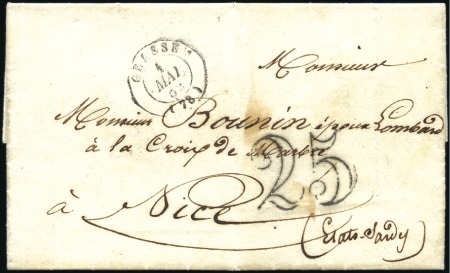 GRASSE
4
MAI
(78)
Monsieur
Monsieur Bounin époux Lombard
à la Croix de Marbre
25
à Nice
(Etats Sardes)